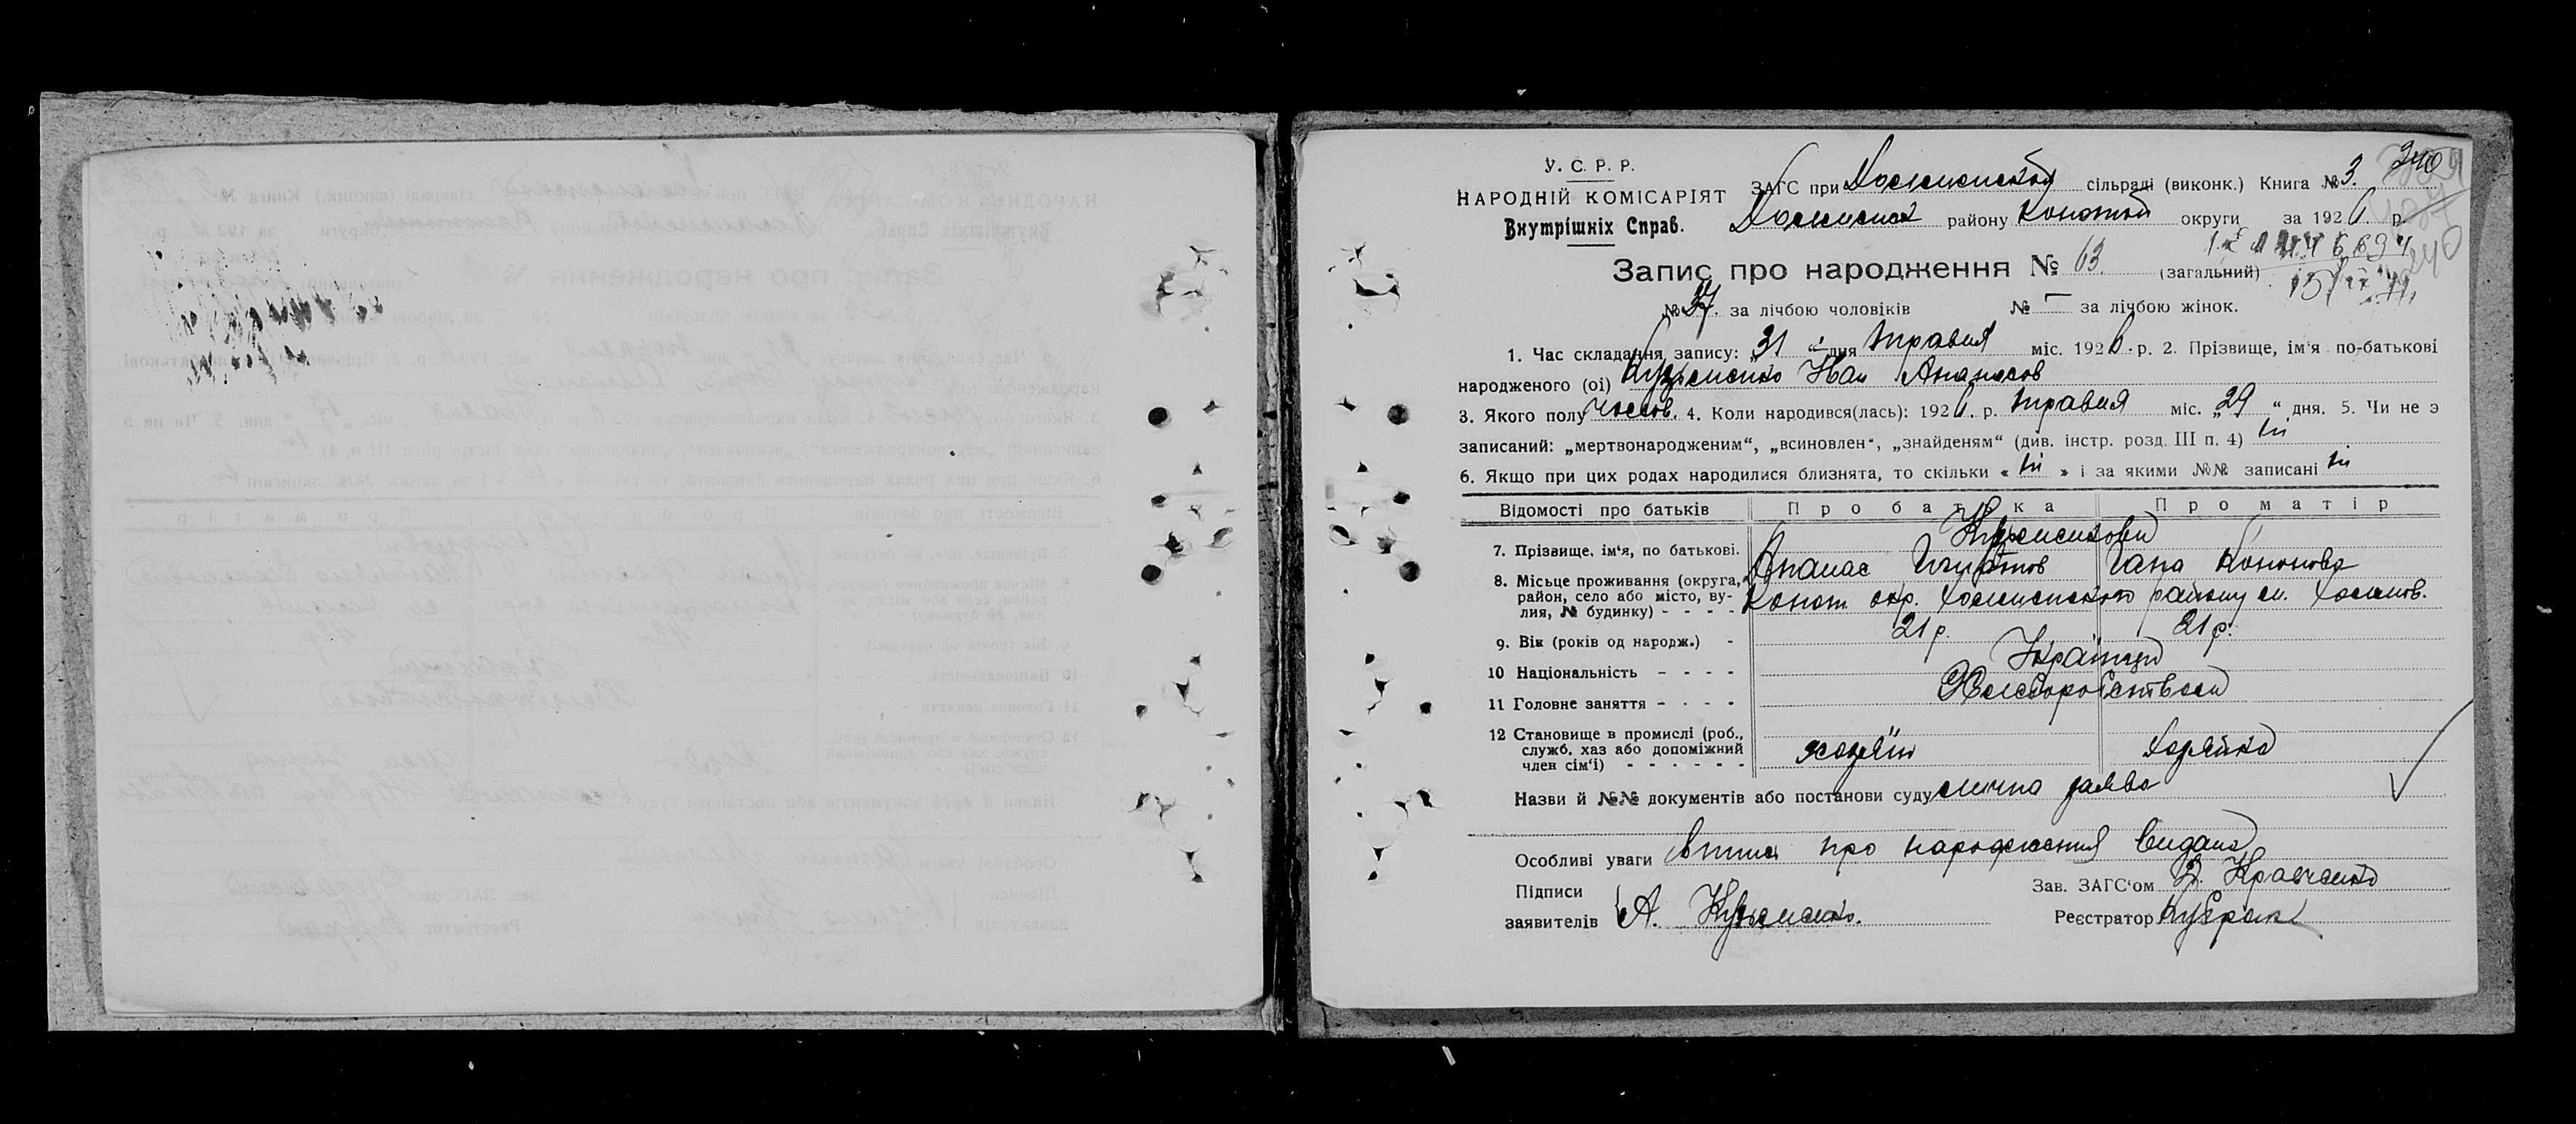 У. С. Р. Р.
НАРОДНІЙ КОМІСАРІЯТ
Внутрішніх Справ.
ЗАГС при сільраді (виконк.) Книга № 3. 340
району Конотоп округи за 1926. р.
Запис про народження № 63. (загальний)
№ 37. за лічбою чоловіків № — за лічбою жінок.
1. Час складання запису: „31“ дня травня міс. 1926. р. 2. Прізвище, ім'я по-батькові
народженого (ої) Кузьменко Іван Апанасов
3. Якого полу чолов. 4. Коли народився(лась): 1926. р. травня міс. „29“ дня. 5. Чи не э
записаний: „мертвонародженим“, „всиновлен“, „знайденям“ (див. інстр. розд. III п. 4) ні
6. Якщо при цих родах народилися близнята, то скільки « ні » і за якими №№ записані ні
Відомості про батьків Про батька Про матір
Кузьменкови
7. Прізвище, ім‘я, по батькові.
Апанас Ігнатов Гапа Кононова
8. Місьце проживання (округа, район, село або місто, вулия, № будинку) - - - -
Конот окр. району
9. Вік (років од народж.) - 21 р. 21 р.
10 Національність - - - - Українці
11 Головне заняття - - - - Хліборобством
12 Становище в промислі (роб.,
служб. хаз або допоміжний
член сім‘ї) - - - - - -
хазяїн хазяйка
Назви й №№ документів або постанови суду слична заява
Особливі уваги про народження видана
Підписи
заявителів А. Кузьменко.
Зав. ЗАГС‘ом Кравченко
Реєстратор Кубрак